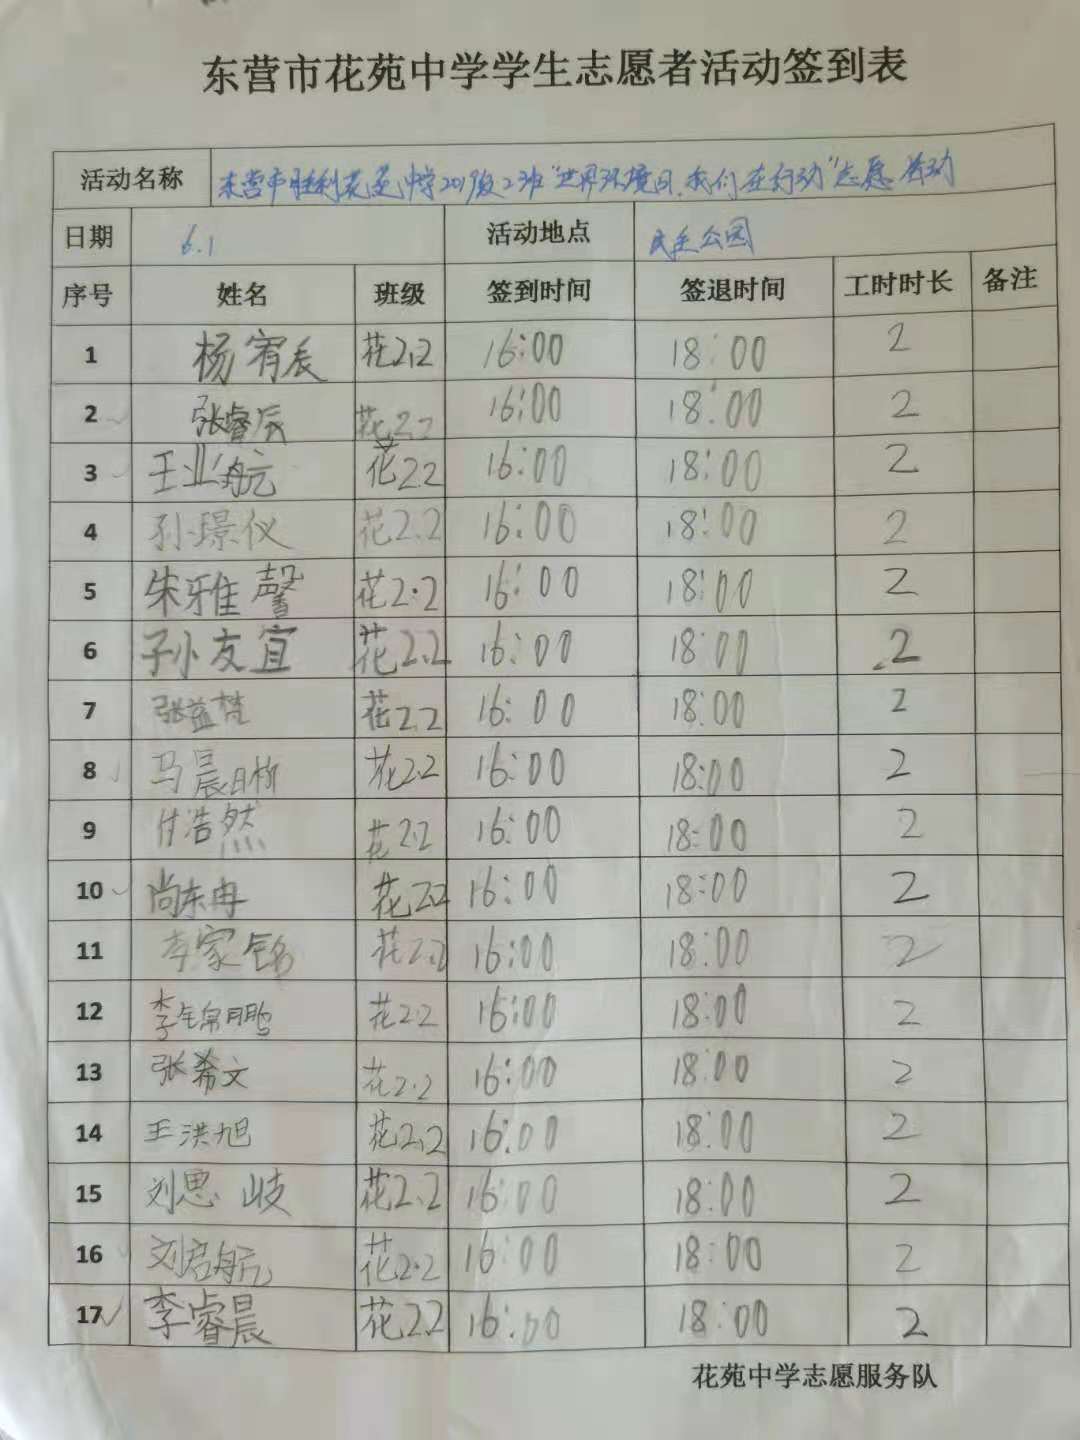 东营市花苑中学学生志愿者活动签到表
活动名称 东营市胜利花苑中学2019级2班"世界环境日,我们在行动"志愿活动
日期 6.1 活动地点 民主公园
序号 姓名 班级 签到时间 签退时间 工时时长 备注
1 杨宥辰 花2.2 16:00 18:00 2
2 张睿辰 花2.2 16:00 18:00 2
3 王业航 花2.2 16:00 18:00 2
4 孙璟仪 花2.2 16:00 18:00 2
5 朱雅馨 花2.2 16:00 18:00 2
6 孙友宜 花2.2 16:00 18:00 2
7 张益梵 花2.2 16:00 18:00 2
8 马晨 花2.2 16:00 18:00 2
9 付浩然 花2.2 16:00 18:00 2
10 尚东冉 花2.2 16:00 18:00 2
11 李家铭 花2.2 16:00 18:00 2
12 李锦鹏 花2.2 16:00 18:00 2
13 张希文 花2.2 16:00 18:00 2
14 王洪旭 花2.2 16:00 18:00 2
15 刘思岐 花2.2 16:00 18:00 2
16 刘启航 花2.2 16:00 18:00 2
17 李睿晨 花2.2 16:00 18:00 2
花苑中学志愿服务队